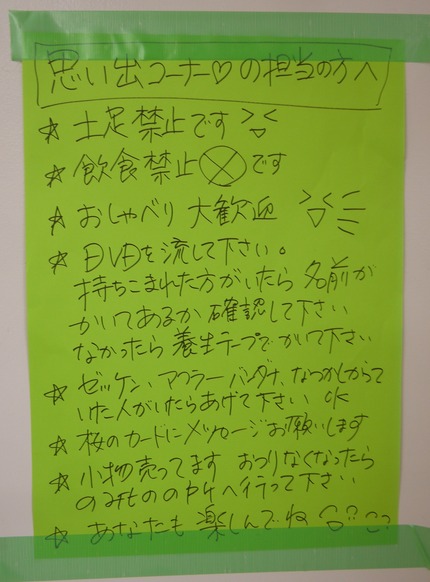 思い出コーナー♡の担当の方へ
☆ 土足禁止です
☆ 飲食禁止 です
☆ おしゃべり 大歓迎
☆ DVDを流して下さい。
持ちこまれた方がいたら 名前が
かいてあるか 確認して下さい
なかったら 養生テープで かいて下さい
☆ ゼッケン、マフラー バンダナ、なつかしがって
いた人がいたらあげて下さい OK
☆ 桜のカードにメッセージお願いします
☆ 小物売ってます おつりなくなったら
のみものの へ行って下さい
☆ あなたも 楽しんでね